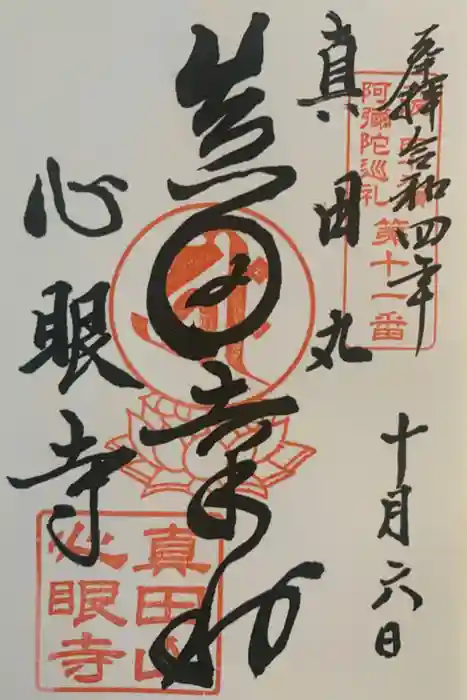 奉拝 令和四年
十月六日
真田丸
真田幸村
心眼寺
阿彌陀巡礼
第十一番
真田山
心眼寺